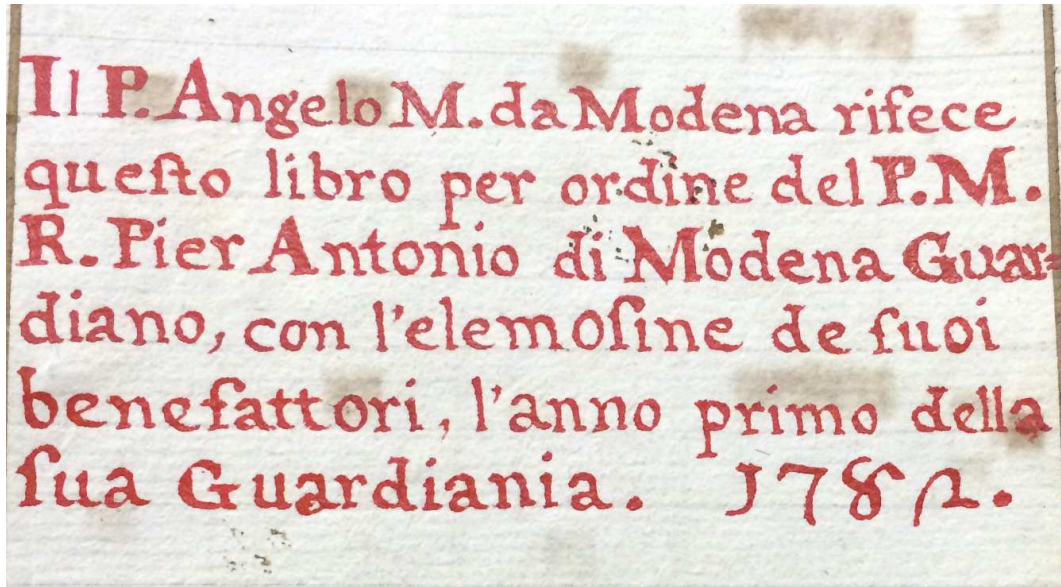 Il P. Angelo M. da Modena rifece
queſto libro per ordine del P. M.
R. Pier Antonio di Modena Guar=
diano, con l'elemoſine de ſuoi
benefattori, l'anno primo della
ſua Guardiania. 1782.